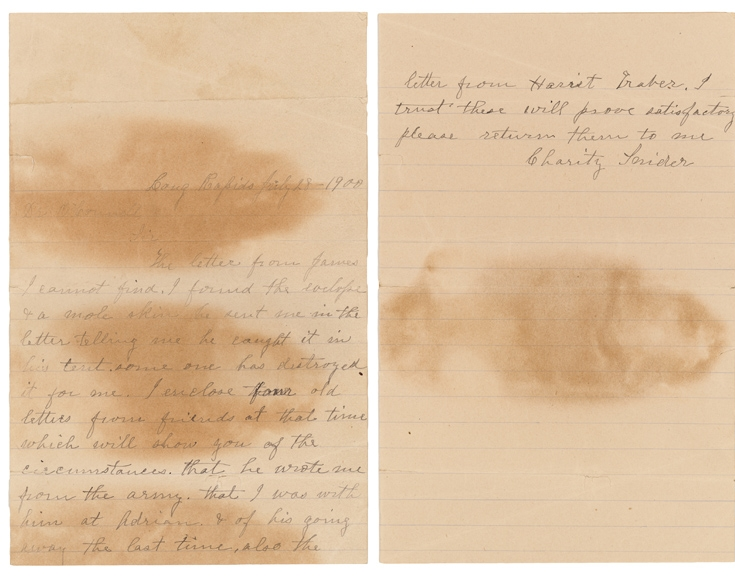 Long Rapids July 28-1900
Sir
The letter from James
I cannot find. I found the evelope
& a mole skin he sent me in the
letter telling me he caught it in
his tent. some one has distroyed
it for me. I enclose four old
letters from friends at that time
which will show you of the
circumstances. that he wrote me
from the army. that I was with
him at Adrian. & of his going
away the last time, also the
letter from Harriet Traber. I
trust these will prove satisfactory
please return them to me
Charity Snider